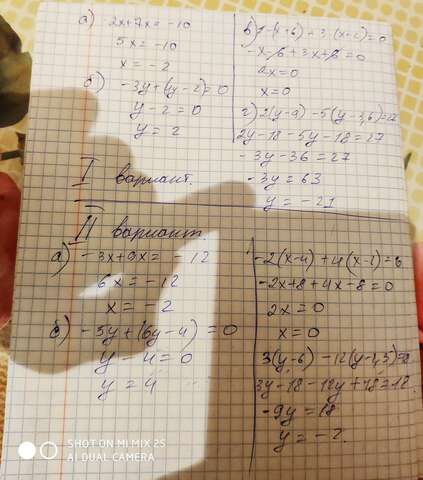 а) 2x+7x = -10
5x = -10
x = -2
б) -3y+(4y-2)=0
y-2=0
y=2
-x-6+3x+6=0
2x=0
x=0
2y-18-5y-18=27
-3y-36=27
-3y=63
y=-21
I вариант.
II вариант.
а) -3x+9x = -12
6x = -12
x = -2
б) -5y+(6y-4)=0
y-4=0
y=4
-2(x-4)+4(x-2)=0
-2x+8+4x-8=0
2x=0
x=0
3(y-6)-12(y-1,5)=
3y-18-12y+18=12
-9y=18
y=-2.
SHOT ON MI MIX 2S
AI DUAL CAMERA